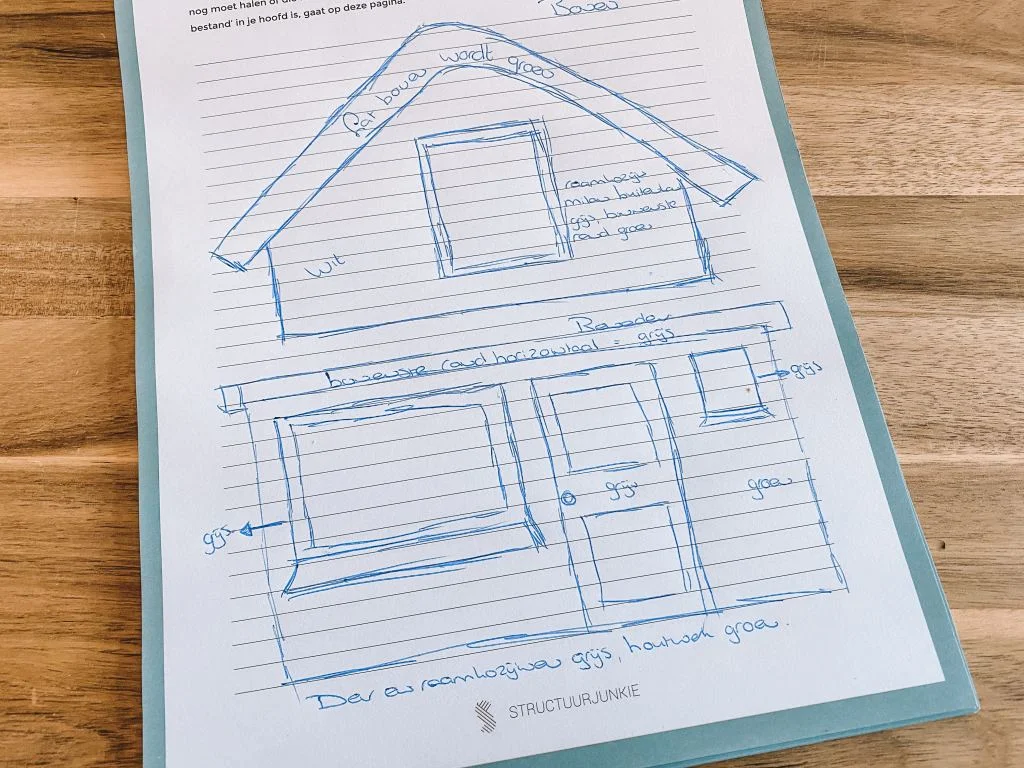 nog moet halen of die
bestand' in je hoofd is, gaat op deze pagina.
Boven
Dat boven wordt groen
raamkozijn
buitenkant
grijs, bovenste
rand groen
Wit
Beneden
bovenste rand horizontaal = grijs
grijs
grijs
groen
grijs
Deur en raamkozijnen grijs, houtwerk groen.
STRUCTUURJUNKIE